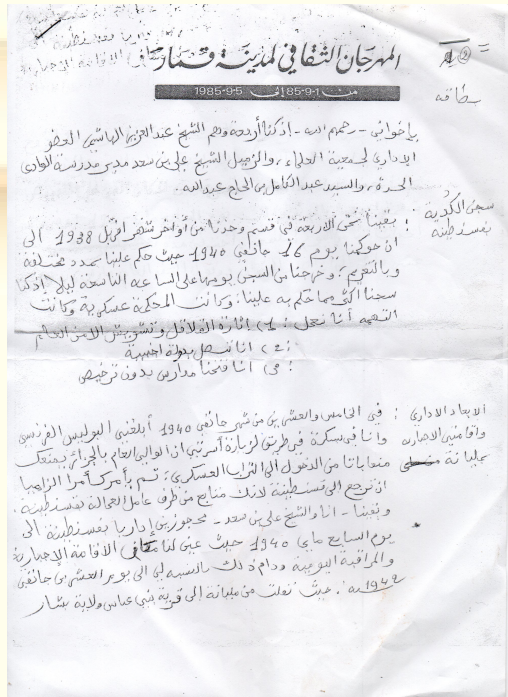 المهرجان الثقافي لمدينة قمار
من 1-9-85 إلى 5-9-1985
بطاقة
بإخواني - رحمهم الله - إذ كنا أربعة وهم الشيخ عبد العزيز الهاشمي العضو
الإداري لجمعية العلماء، والزميل الشيخ علي بن سعد مدير مدرسة الوادي
الحرة، والسيد عبد الكامل بن الحاج عبد الله.
سجن الكدية
بقسنطينة
: بقينا نحن الأربعة في قسم وحدنا من أواخر شهر أفريل 1938 إلى
أن حوكمنا يوم 16 جانفي 1940 حيث حكم علينا بمدد مختلفة
وبالتغريم، وخرجنا من السجن يومها على الساعة التاسعة ليلا إذ كنا
سجنا أكثر مما حكم به علينا. وكانت المحكمة عسكرية وكانت
التهمة أننا نعمل : 1) إثارة القلاقل وتشويش الأمن العام
: 2) أننا نتصل بدولة أجنبية
: 3) أننا فتحنا مدارس بدون ترخيص
الإبعاد الإداري
وإقامتي الإجبارية
بمليانة
: في الخامس والعشرين من شهر جانفي 1940 أبلغني البوليس الفرنسي
وأنا في بسكرة في طريق لزيارة أسرتي أن الوالي العام بالجزائر يمنعك
منعا باتا من الدخول إلى التراب العسكري، ثم يأمرك أمرا إلزاميا
أن ترجع إلى قسنطينة لأنك متابع من طرف عامل العمالة بقسنطينة.
وبقينا - أنا والشيخ علي بن سعد - محجوزين إداريا بقسنطينة إلى
يوم السابع ماي 1940 حيث عين لنا مكان الإقامة الإجبارية
والمراقبة اليومية ودام ذلك بالنسبة لي إلى يوم العشرين من جانفي
1942 حيث نقلت من مليانة إلى قرية بني عباس ولاية بشار